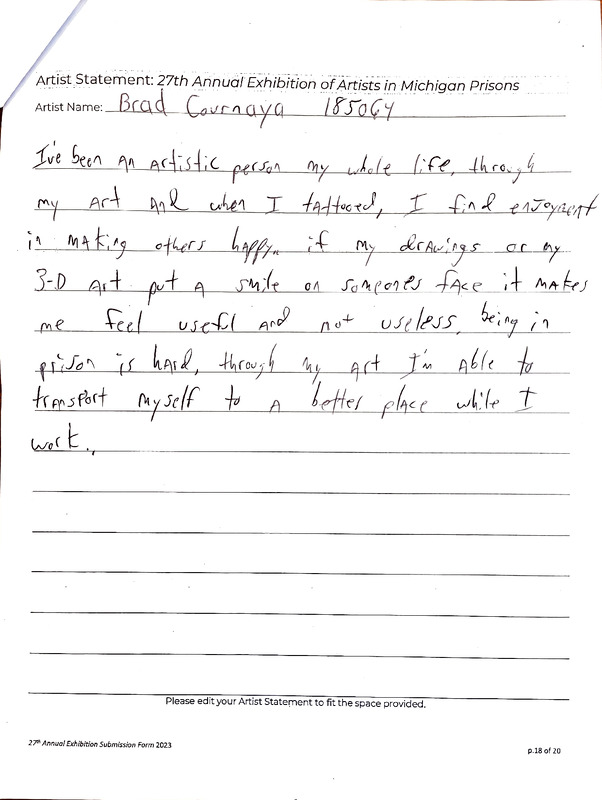 Artist Statement: 27th Annual Exhibition of Artists in Michigan Prisons
Artist Name: Brad Cournaya 185064
I've been an artistic person my whole life, through
my art and when I tattooed, I find enjoyment
in making others happy. if my drawings or my
3-D art put a smile on someones face it makes
me feel usefl and not useless, being in
prison is hard, through my art I'm able to
transport myself to a better place while I
work.,
Please edit your Artist Statement to fit the space provided.
27th Annual Exhibition Submission Form 2023
p.18 of 20